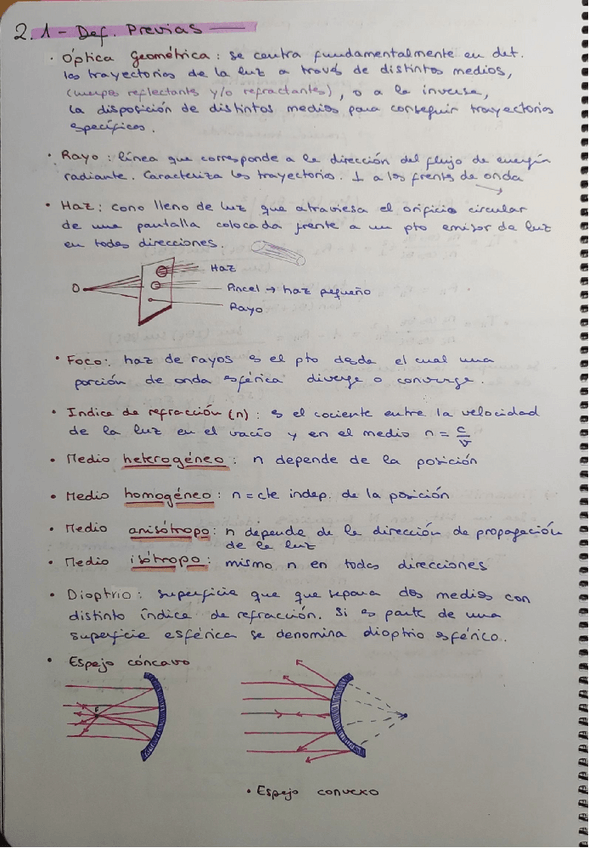 2.1- Def. Previas
· Óptica Geométrica: se centra fundamentalmente en det.
las trayectorias de la luz a través de distintos medios,
(cuerpos reflectantes y/o refractantes), o a la inversa,
la disposición de distintos medios para conseguir trayectorias
específicas.
· Rayo: línea que corresponde a la dirección del flujo de energía
radiante. Caracteriza las trayectorias. ⊥ a los frentes de onda
· Haz: cono lleno de luz que atraviesa el orificio circular
de una pantalla colocada frente a un pto emisor de luz
en todas direcciones.
Haz
O
Pincel → haz pequeño
Rayo
· Foco: haz de rayos es el pto desde el cual una
porción de onda esférica diverge o converge.
· Indice de refracción (n): es el cociente entre la velocidad
de la luz en el vacío y en el medio n = c/v
· Medio heterogéneo: n depende de la posición
· Medio homogéneo: n = cte indep. de la posición
· Medio anisótropo: n depende de la dirección de propagación
de la luz
· Medio isótropo: mismo n en todas direcciones
· Dioptrio: superficie que que separa dos medios con
distinto índice de refracción. Si es parte de una
superficie esférica se denomina dioptrio esférico.
· Espejo cóncavo
· Espejo convexo